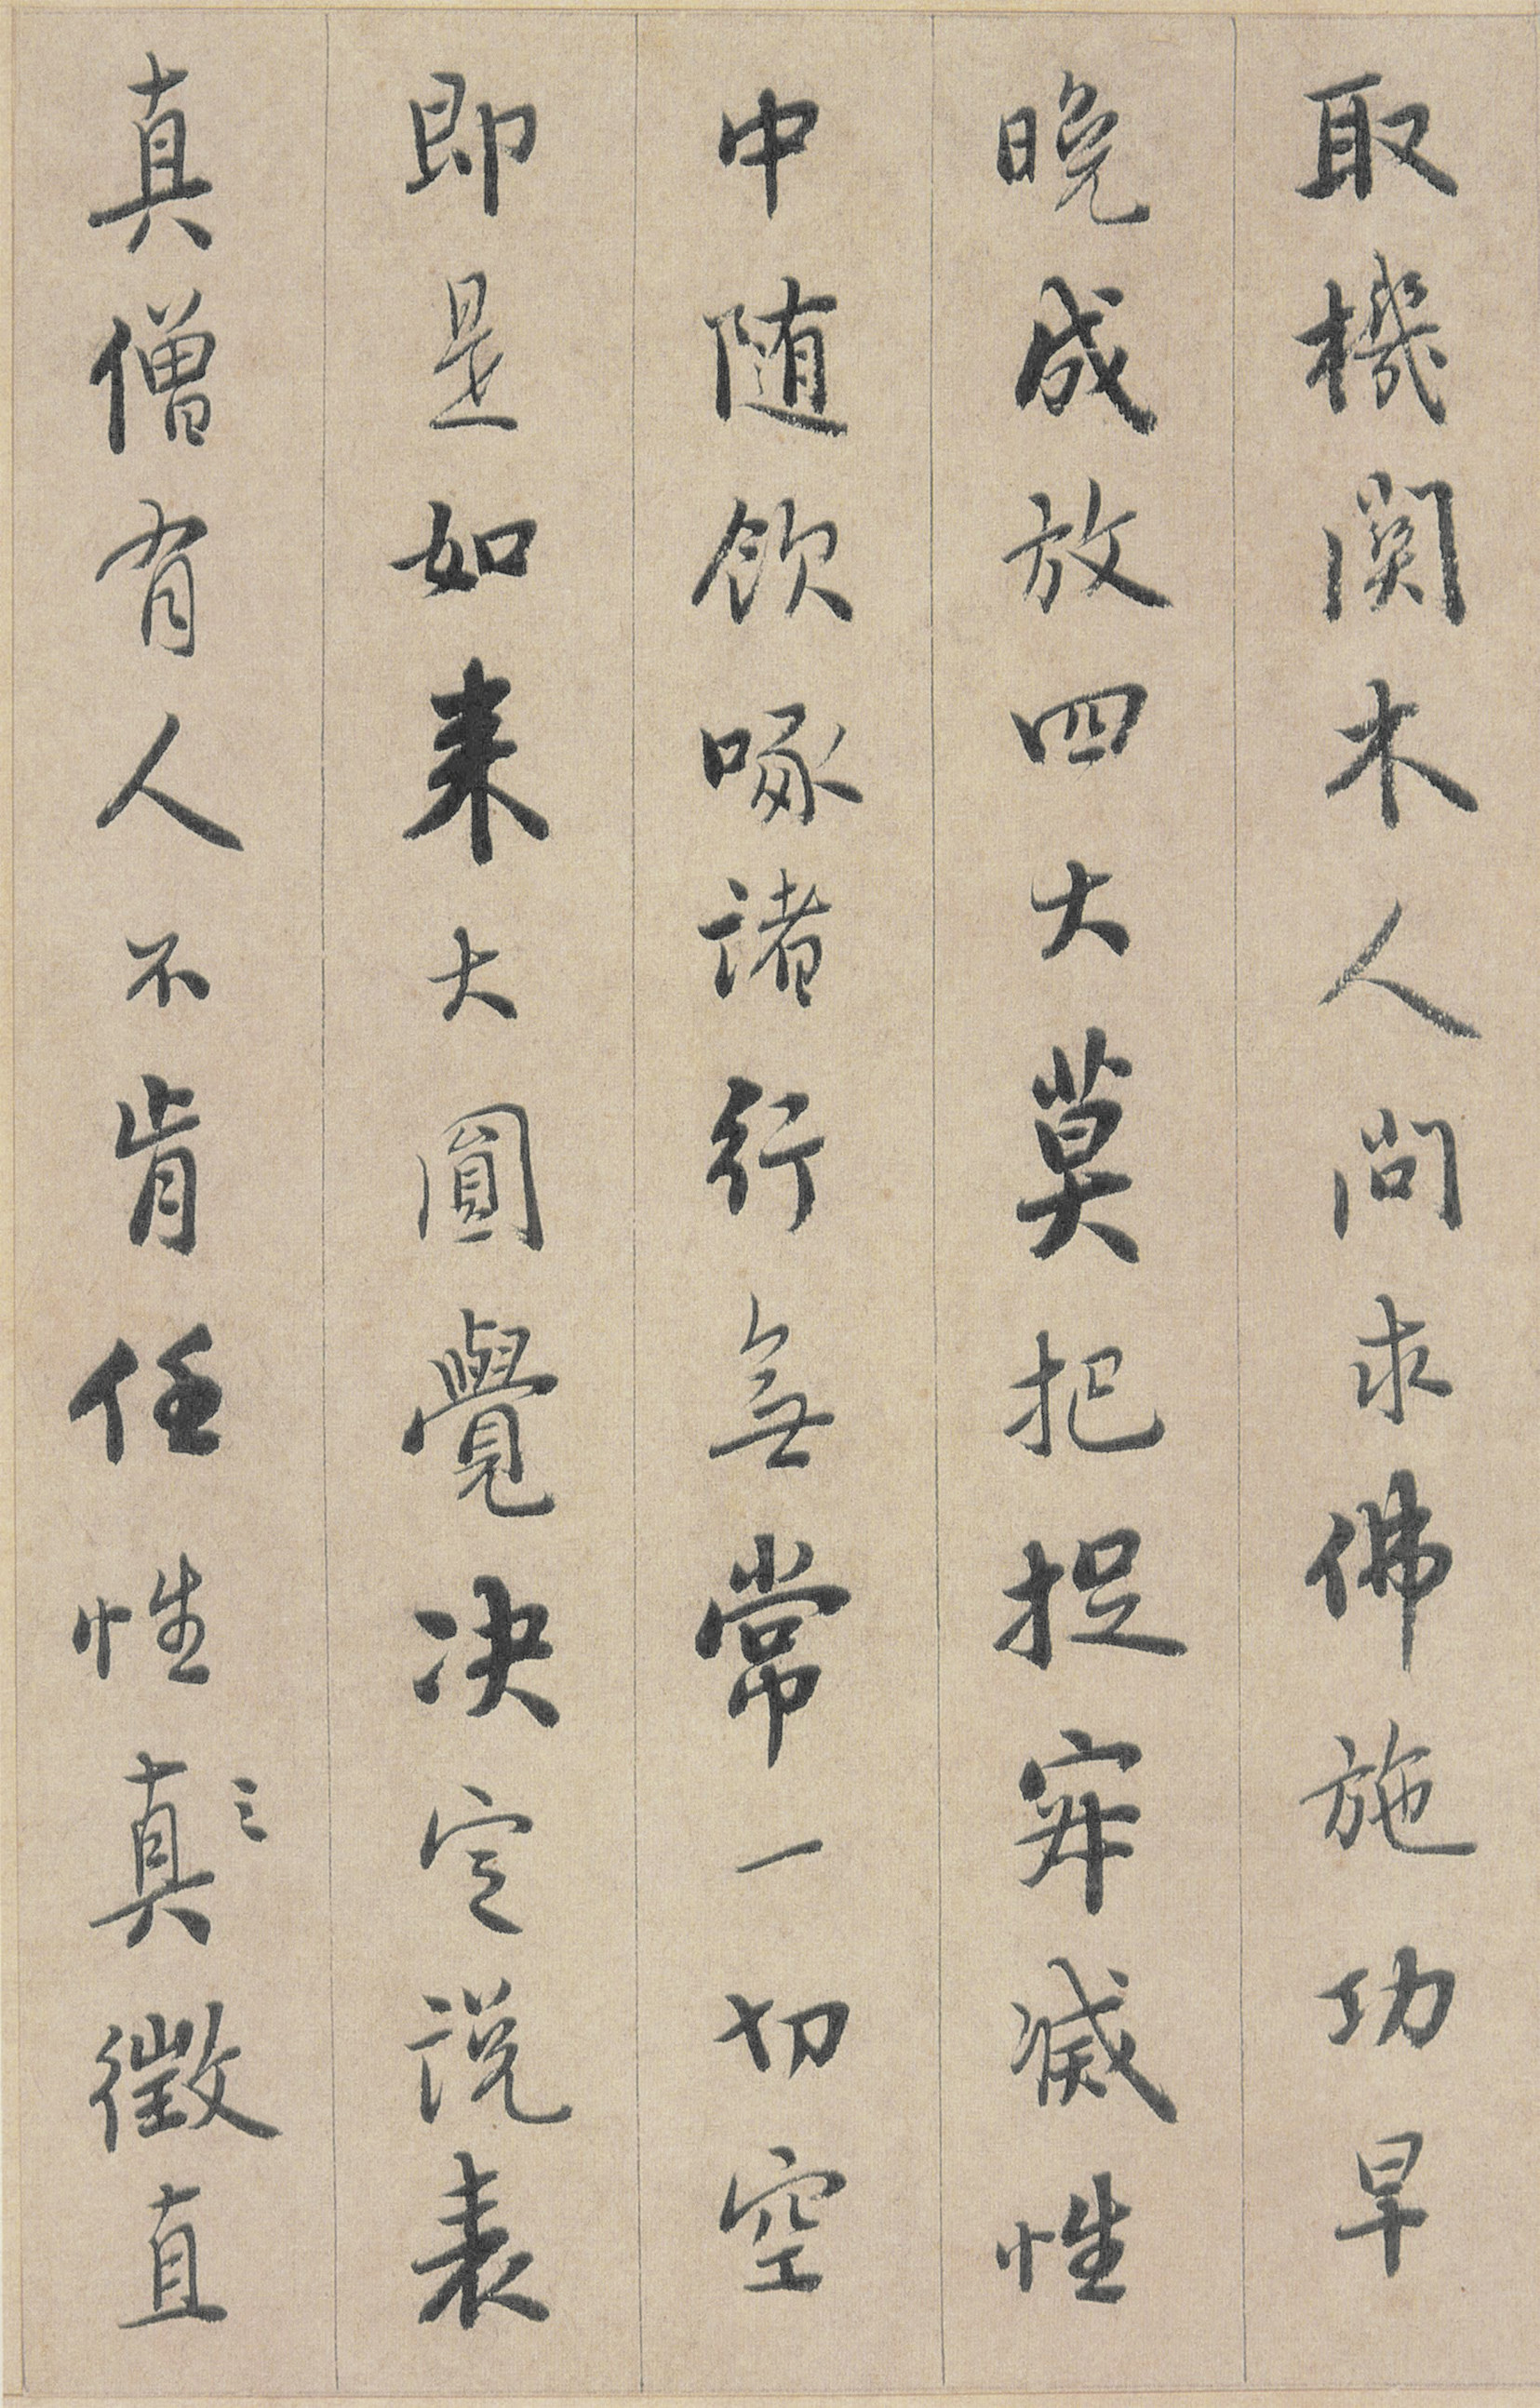 取機関木人問求佛施功早
晚成放四大莫把捉寂滅性
中随飲啄諸行無常一切空
即是如来大圓覺决定說表
真僧有人不肯任性真三徵直